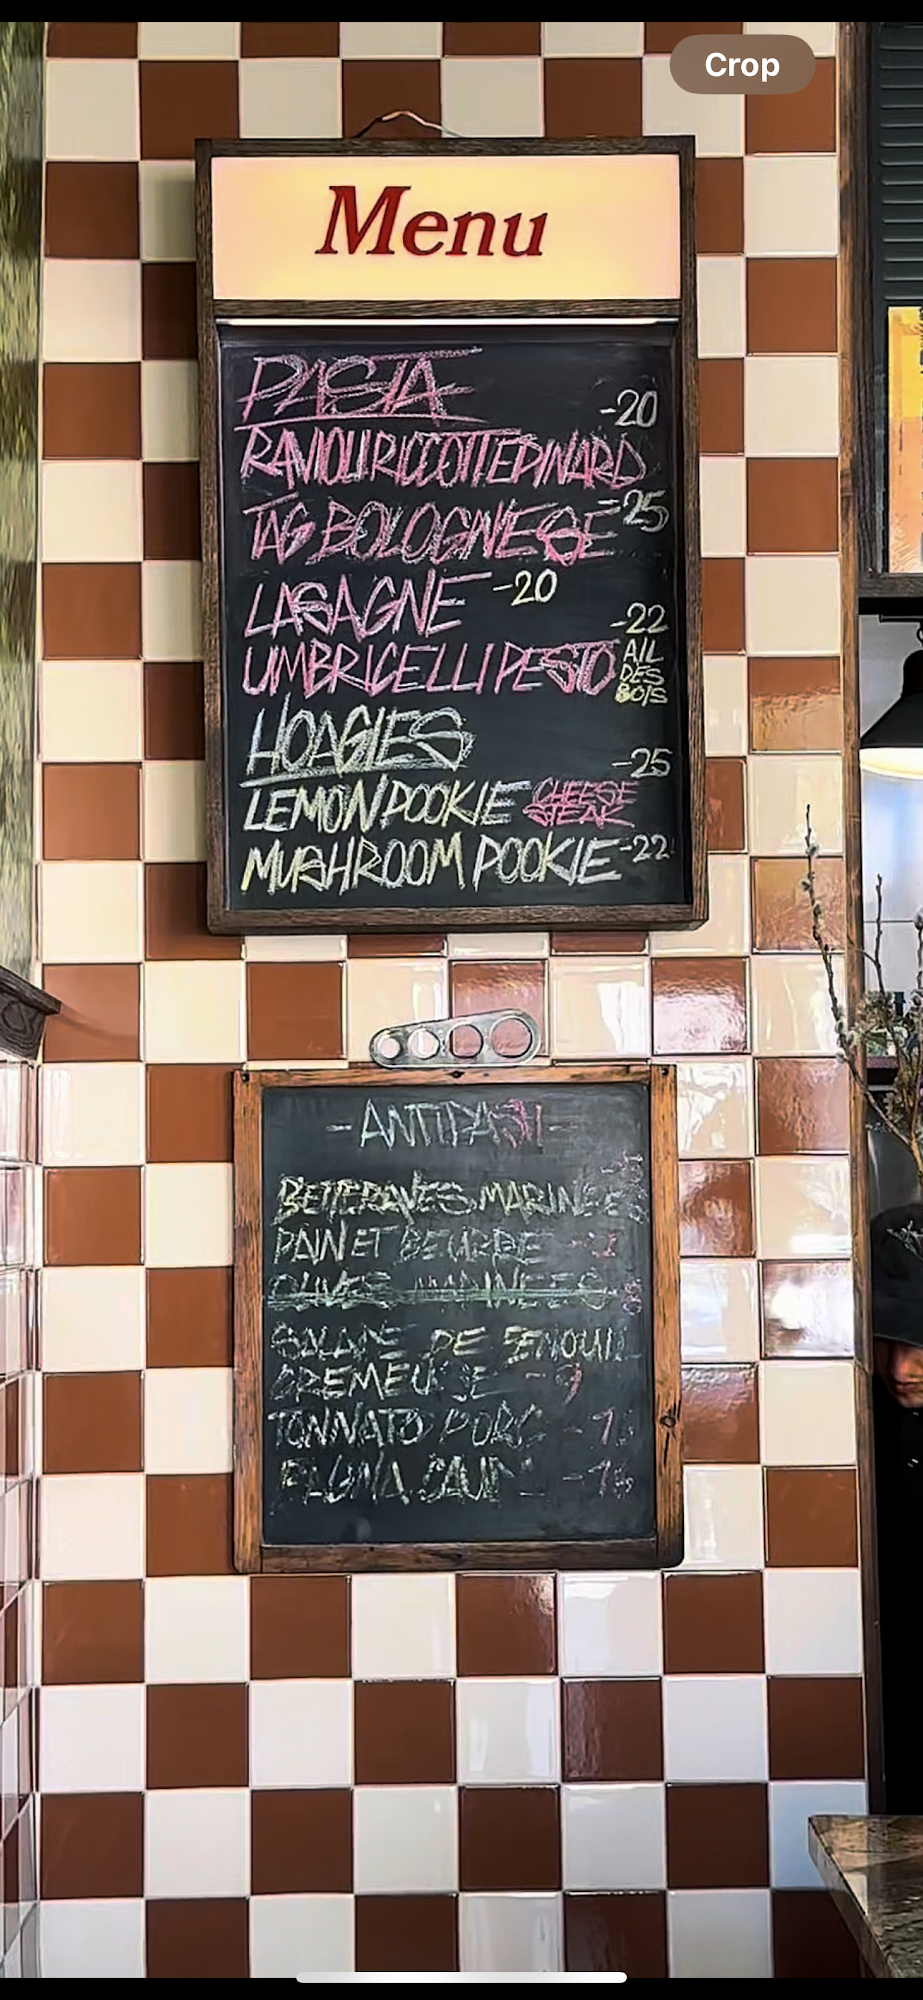 Crop
Menu
PASTA
-20
RAVIOLI RICCOTTE PINARD
-25
TAG BOLOGNESE
LASAGNE -20
-22
UMBRICELLI PESTO AIL
DES
BOIS
HOAGIES
-25
LEMON POOKIE CHEESE
STEAK
MUSHROOM POOKIE -22
-ANTIPASTI-
BETTERAVES MARINEES
PAIN ET BEURRE
OLIVES MARINEES
SALADE DE FENOUIL
CREMEUSE -9
TONNATO PORC